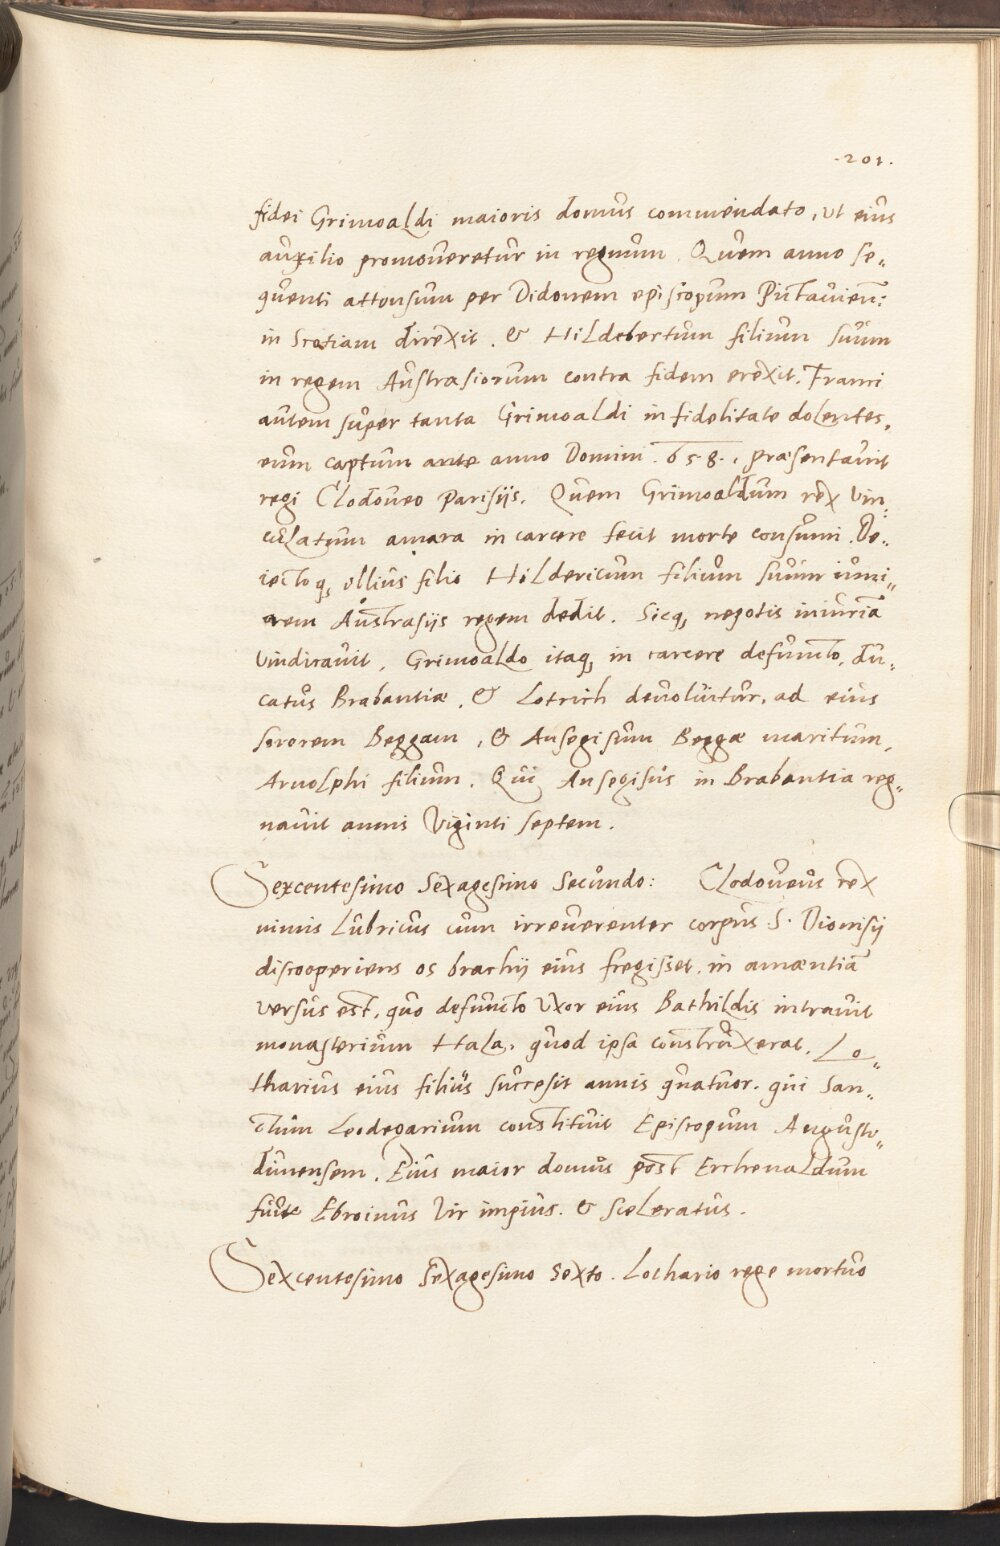 .201.
fidei Grimoaldi maioris domus commendato, ut eius
auxilio promoveretur in regnum. Quem anno se„
quenti attonsum per Didonem episcopum Pictavien:
in Scotiam direxit. & Hildebertum filium suum
in regem Austrasiorum contra fidem erexit. Franci
autem super tanta Grimoaldi infidelitate dolentes,
eum captum ante anno Domini .658., præsentavit
regi Clodoveo Parisijs. Quem Grimoaldum rex vin„
culatum amara in carcere fecit morte consumi. De„
iectoq, ollius filio Hildericum filium suum iuni„
orem Austrasijs regem dedit. Sicq, negotis iniuriā
vindicavit. Grimoaldo itaq, in carcere defuncto, du„
catus Brabantiæ, & Lotrich devolvitur, ad eius
sororem Beggam, & Ansegisum Beggæ maritum,
Arnolphi filium. Qui Ansegisus in Brabantia reg„
navit annis viginti septem.
Sexcentesimo Sexagesimo Secundo: Clodoveus rex
nimis lubricus cum irreverenter corpus S. Dionisij
discooperiens os brachij eius fregisset, in amæntiā
versus est, quo defuncto uxor eius Bathildis intravit
monasterium Hala, quod ipsa construxerat. Lo„
tharius eius filius successit annis quatuor. qui San„
ctum Leodegarium constituit Episcopum Augusto„
dunensem. Eius maior domus post Erchenaldum
fuit Ebroinus vir impius. & sceleratus.
Sexcentesimo Sexagesimo Sexto. Lothario rege mortuo